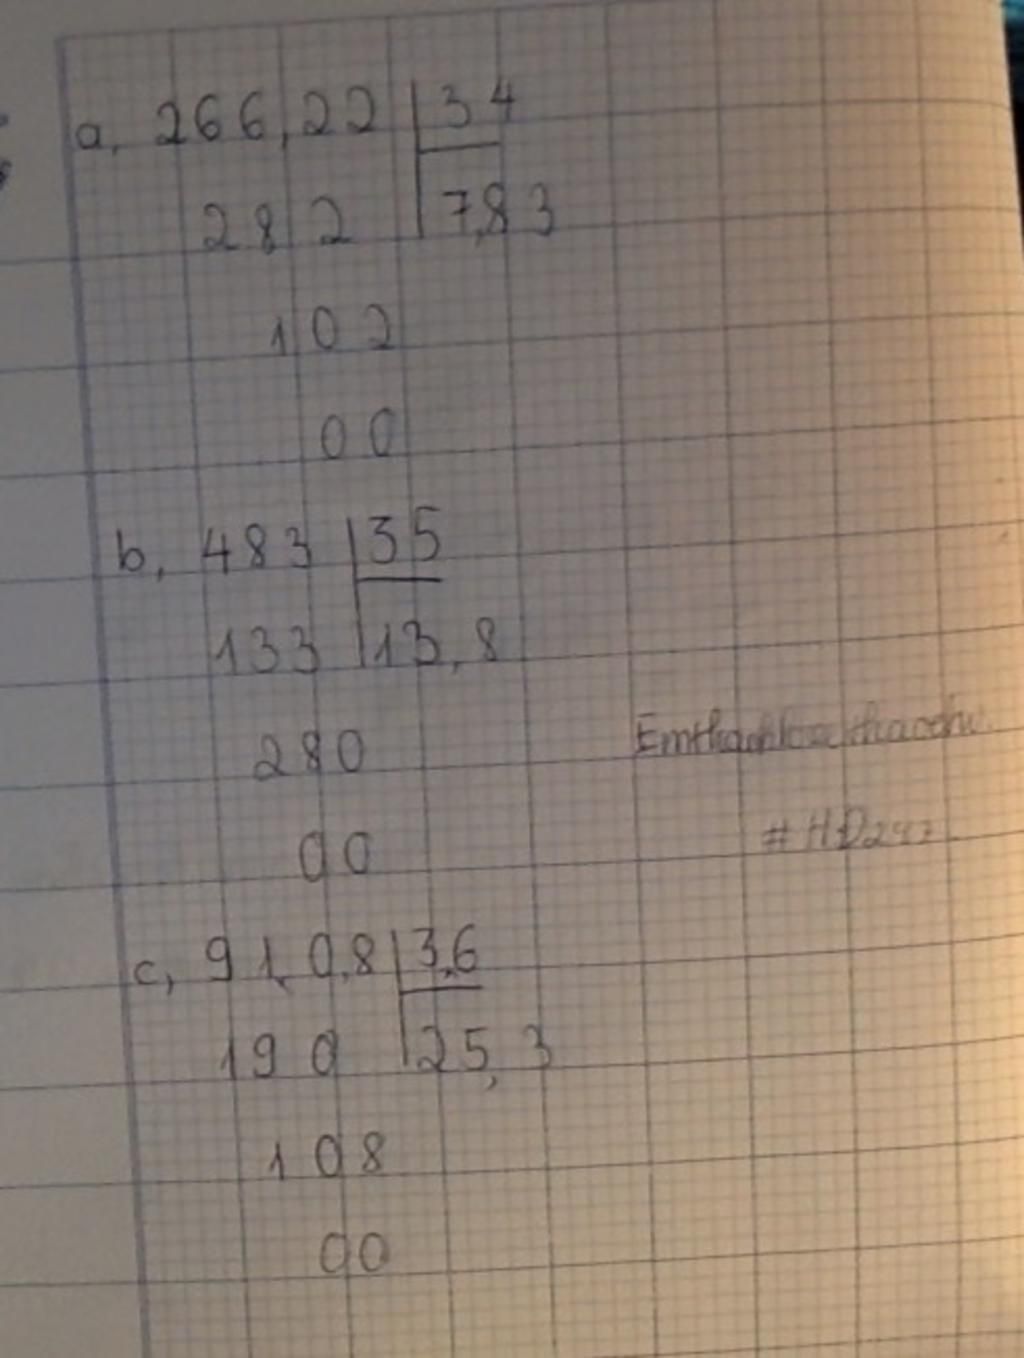 a, 266,22 | 34
282 | 7,83
102
00
b, 483 | 35
133 | 13,8
280
00
c, 91,0,8 | 3,6
190 | 25,3
108
00